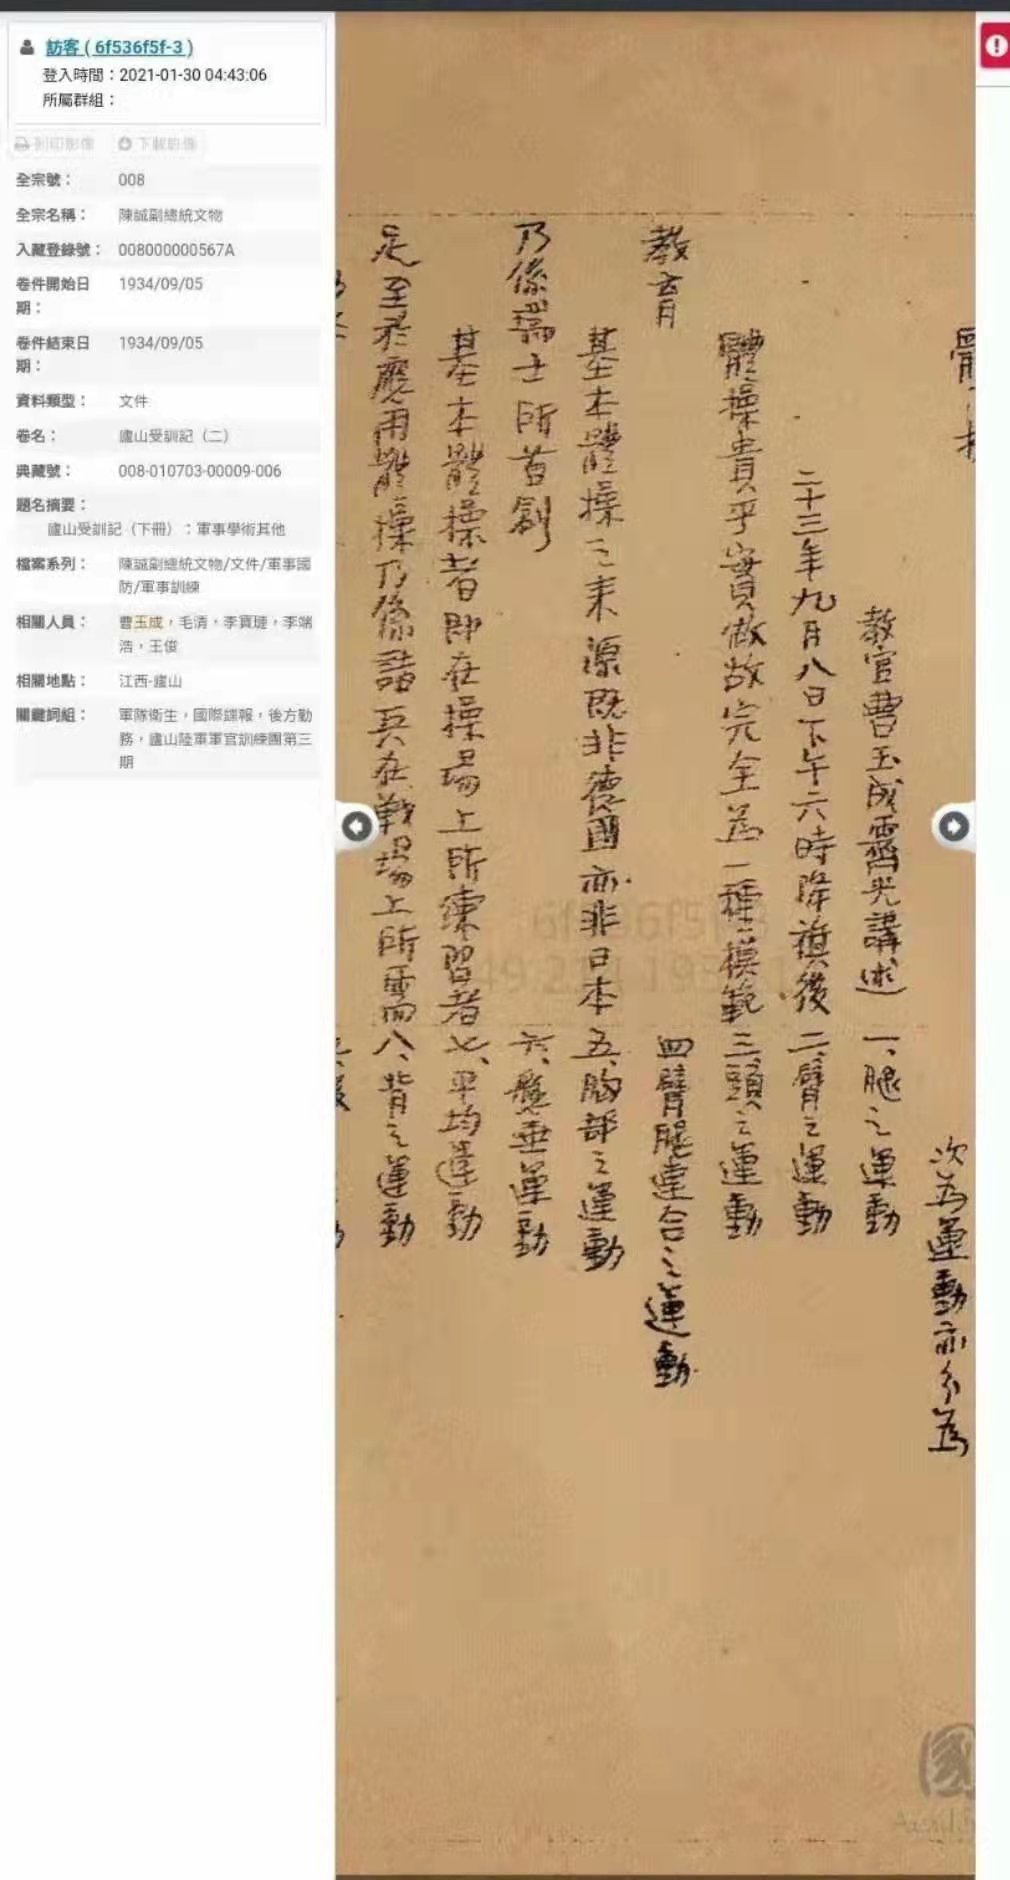 訪客 ( 6f536f5f-3 )
登入時間：2021-01-30 04:43:06
所屬群組：
列印影像 下載影像
全宗號： 008
全宗名稱： 陳誠副總統文物
入藏登錄號： 008000000567A
卷件開始日 1934/09/05
期：
卷件結束日 1934/09/05
期：
資料類型： 文件
卷名： 廬山受訓記（二）
典藏號： 008-010703-00009-006
題名摘要：
廬山受訓記（下冊）：軍事學術其他
檔案系列： 陳誠副總統文物/文件/軍事國
防/軍事訓練
相關人員： 曹玉成，毛清，李寶璉，李端
浩，王俊
相關地點： 江西-廬山
關鍵詞組： 軍隊衛生，國際諜報，後方勤
務，廬山陸軍軍官訓練團第三
期
體操
教官曹玉成霽光講述
二十三年九月八日下午六時降旗後
體操貴乎實做故完全為一種模範
教育
基本體操之來源既非德國亦非日本
乃係瑞士所首創
基本體操者即在操場上所練習者
至於應用體操乃係諸兵在戰場上所需
次為運動亦分為
一、腿之運動
二、臂之運動
三、頭之運動
四臂腿連合之運動
五、胸部之運動
六、懸垂運動
七、平均運動
八、背之運動
國